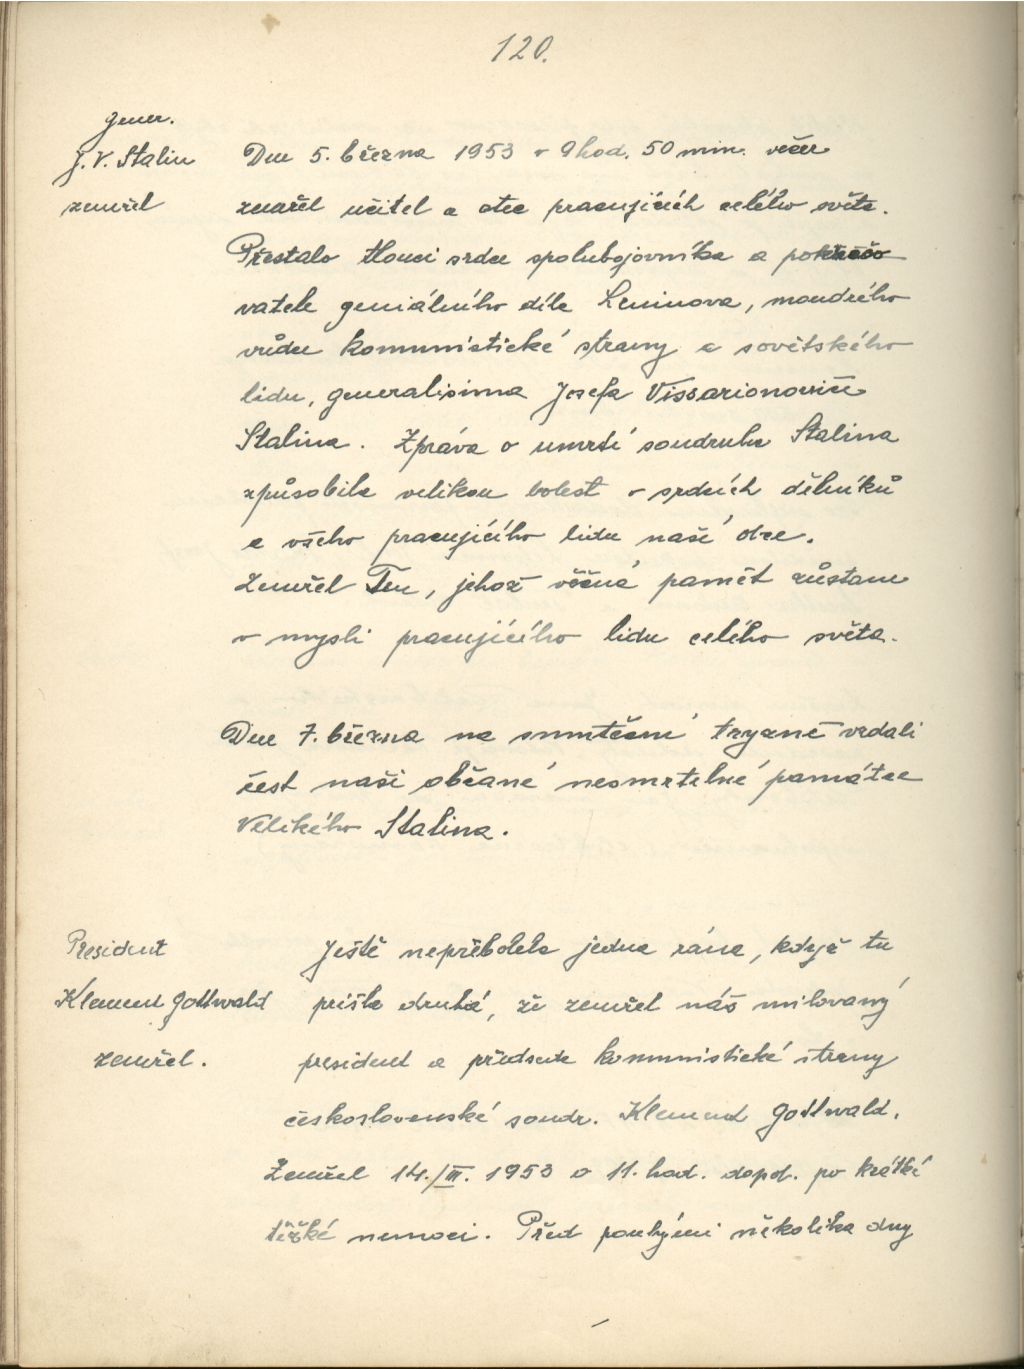 120.
gener.
J. V. Stalin
zemřel
Dne 5. března 1953 v 9 hod. 50 min. večer
zemřel učitel a otec pracujících celého světa.
Přestalo tlouci srdce spolubojovníka a pokračo
vatele geniálního díla Leninova, moudrého
vůdce komunistické strany a sovětského
lidu, generalisima Josefa Vissarionoviče
Stalina. Zpráva o úmrtí soudruha Stalina
způsobila velikou bolest v srdcích dělníků
a všeho pracujícího lidu naší obce.
Zemřel Ten, jehož věčná paměť zůstane
v mysli pracujícího lidu celého světa.
Dne 7. března na smuteční tryzně vzdali
čest naši občané nesmrtelné památce
Velikého Stalina.
President
Klement Gottwald
zemřel.
Ještě nepřebolela jedna rána, když tu
přišla druhá, že zemřel náš milovaný
president a předseda komunistické strany
československé soudr. Klement Gottwald.
Zemřel 14./III. 1953 v 11. hod. dopol. po krátké
těžké nemoci. Před pouhými několika dny